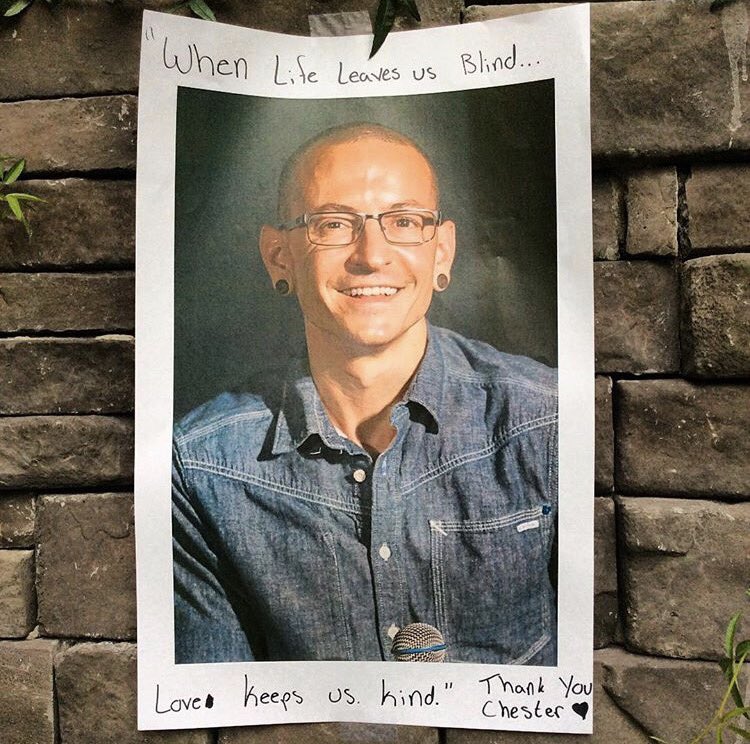 "When Life Leaves us Blind...
Love keeps us. kind." Thank You
Chester ♥